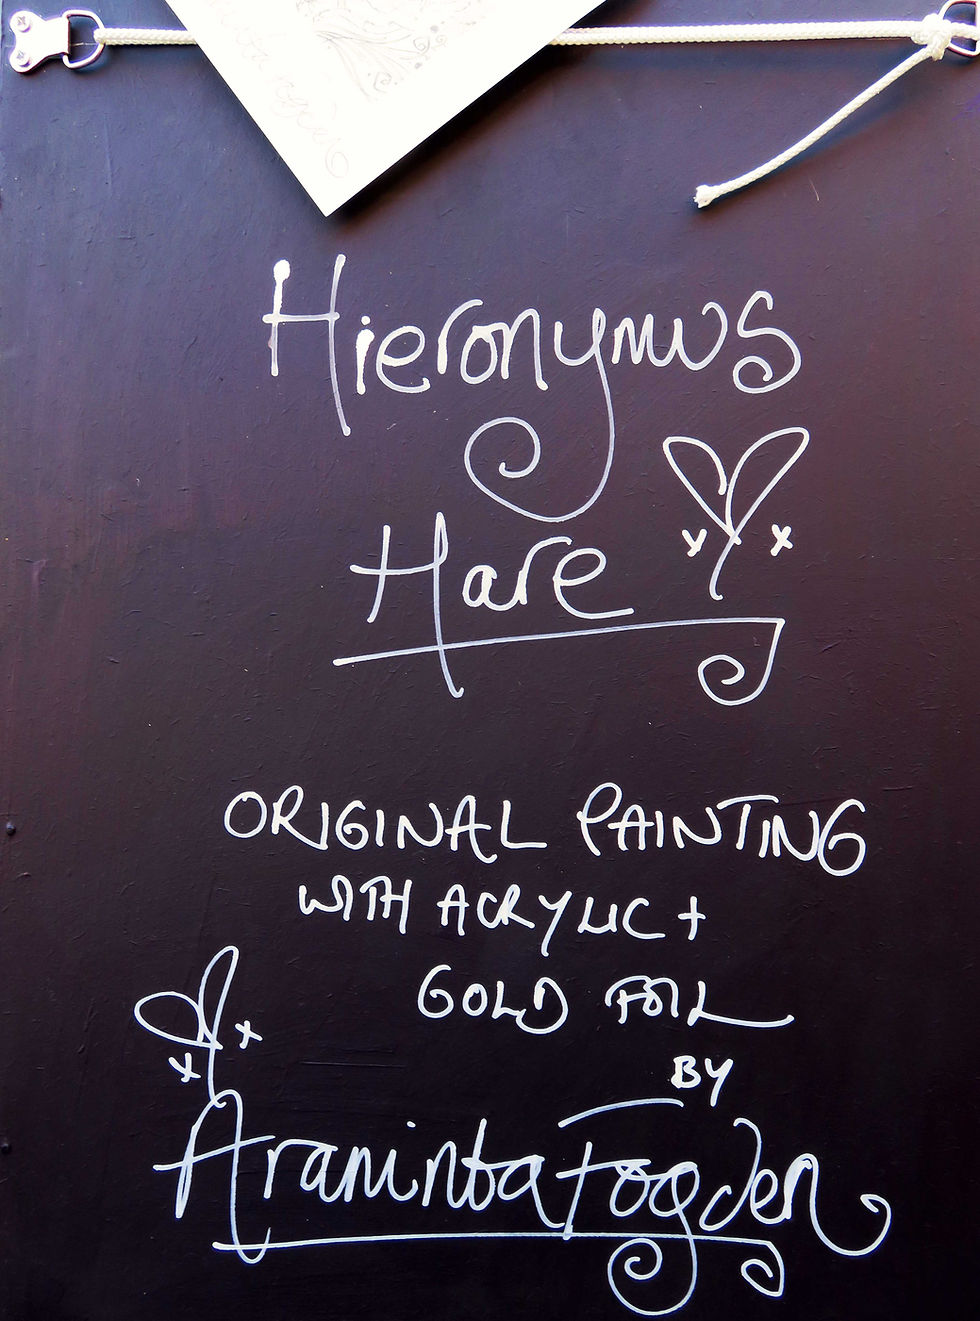 Hieronymus
Hare
x x
ORIGINAL PAINTING
WITH ACRYLIC +
GOLD FOIL
x x
BY
Araminta Fogden